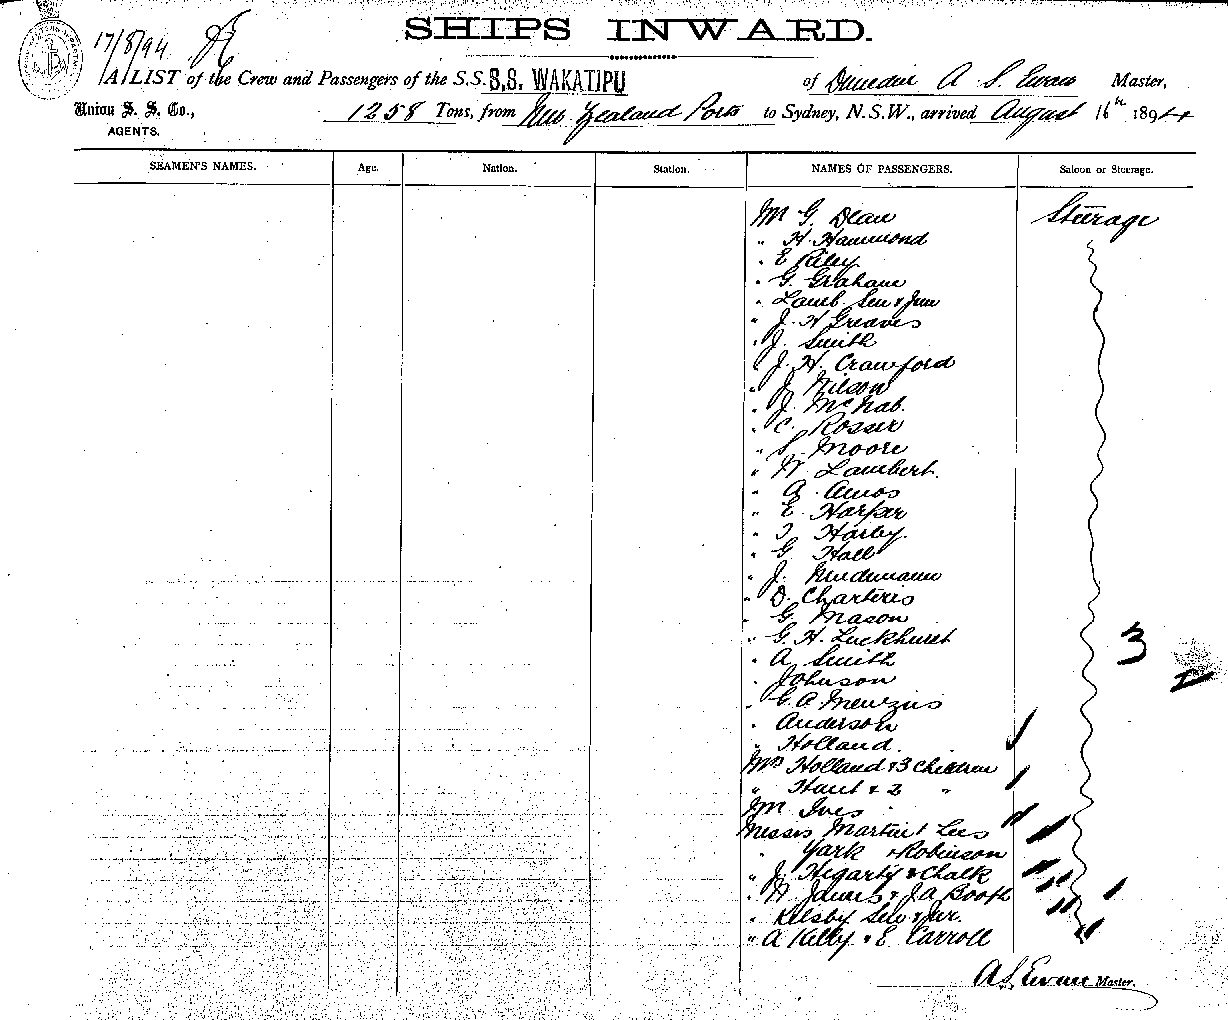 SHIPS INWARD.
17/8/94
A LIST of the Crew and Passengers of the S.S. S.S. WAKATIPU of Dunedin A S. Evans Master,
Union S. S. Co., 1258 Tons, from New Zealand Ports to Sydney, N.S.W., arrived August 16th 1894
AGENTS.
SEAMEN'S NAMES. Age. Nation. Station. NAMES OF PASSENGERS. Saloon or Steerage.
Mr G. Dean Steerage
" H. Hammond
" E Riley
" G. Graham
" Lamb Sen & Jun
" J. H Greaves
" J. Smith
" J. H. Crawford
" J. Nilson
" J. McNab.
" C. Rosser
" S. Moore
" W. Lambert.
" A. Amos
" E. Harper
" T. Harby.
" G. Hall
" J.
" D. Charteris
" G. Mason
" G. H. Luckhurst
" A. Smith 3
" Johnson
" G. A. Menzies
" Anderson
" Holland.
Mrs Holland & 3 Children
" Hunt & 2 "
Mr Ives
Messrs Martin & Lees
" York & Robinson
" J. Hegarty & Chalk
" W. James & J A Booth
" Kelsby Sen & Jur.
" A Kelly & E Carroll
A S. Evans Master.